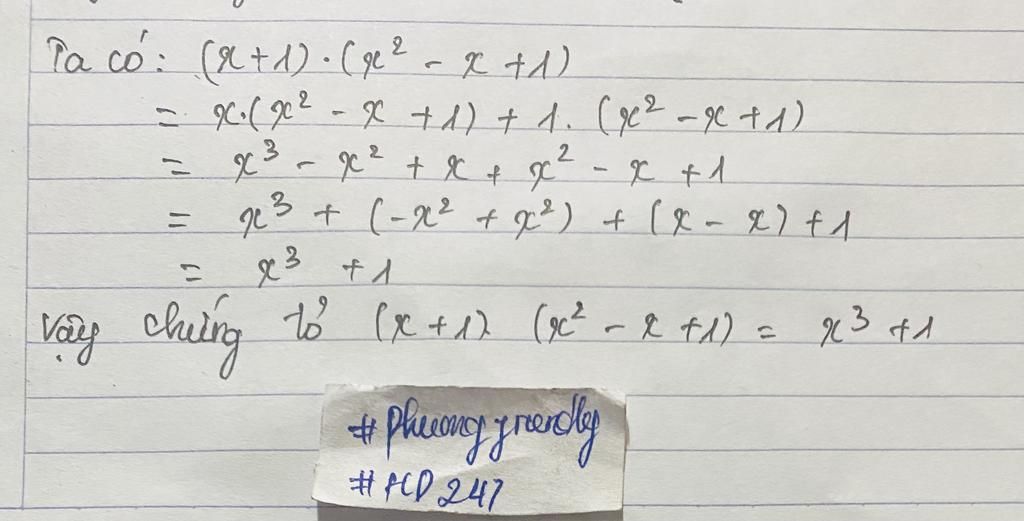 Ta có: (x+1).(x² - x +1)
= x.(x² - x +1) + 1. (x² - x +1)
= x³ - x² + x + x² - x +1
= x³ + (-x² + x²) + (x - x) +1
= x³ +1
Vậy chứng tỏ (x+1). (x² - x +1) = x³ +1
#phuongfriendly
#PCD247